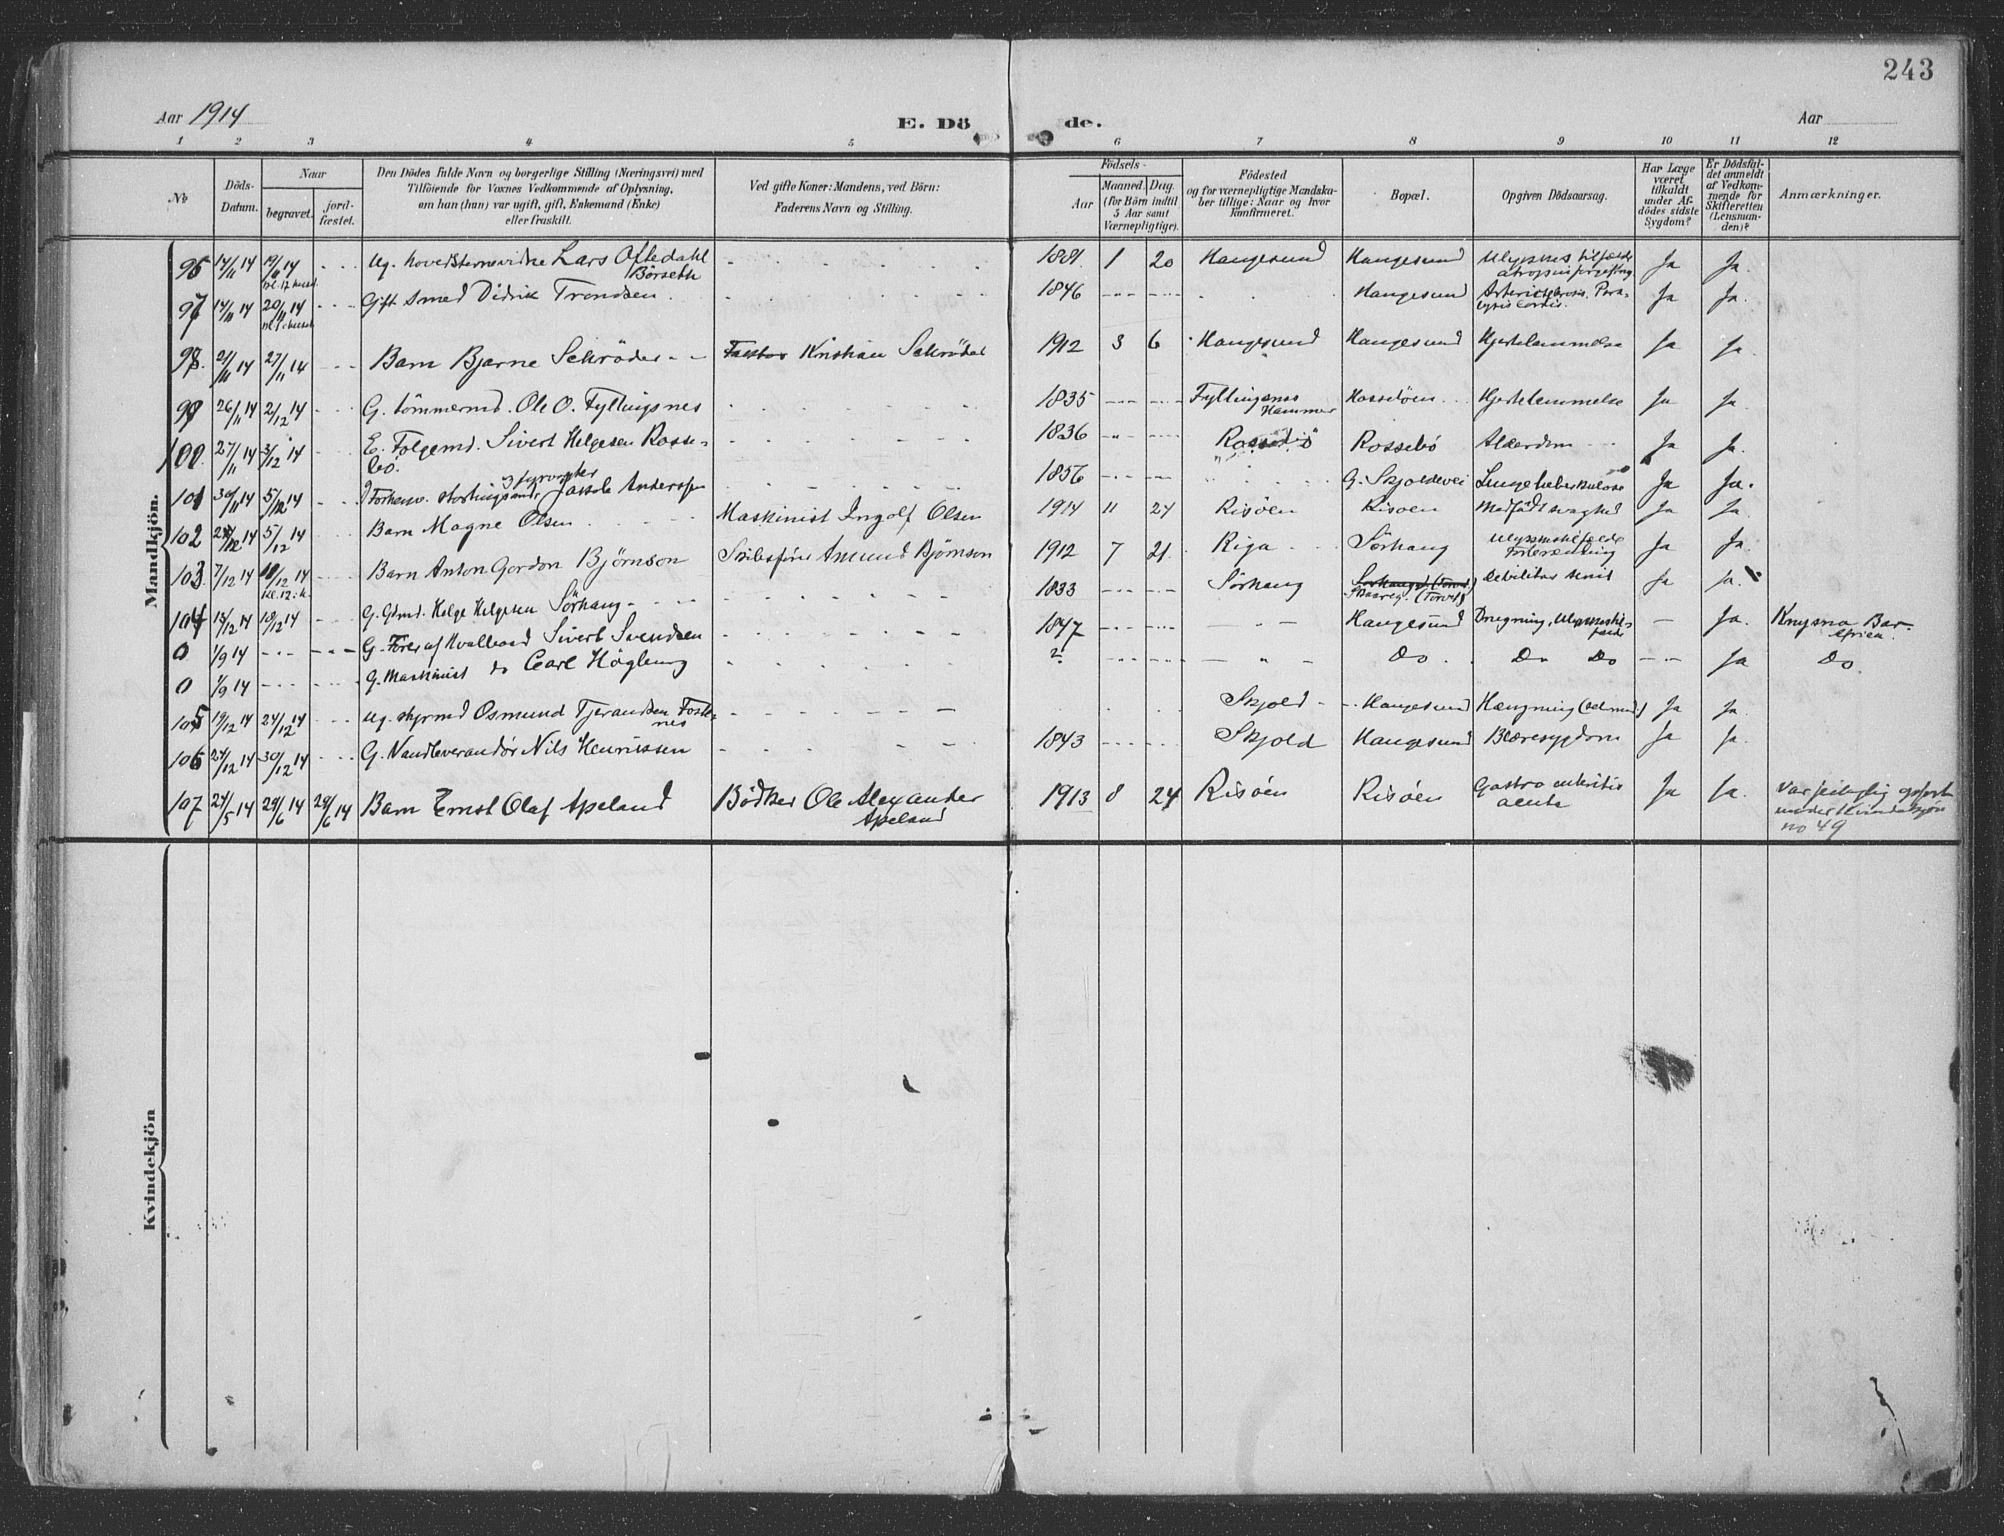 243
Aar 1914
E. Dö
de.
Aar
1 2 3 4 5 6 7 8 9 10 11 12
No
Döds-
Datum.
Naar
begravet.
jord-
fæstet.
Den Dödes fulde Navn og borgerlige Stilling (Næringsvei) med
Tilföiende for Voxnes Vedkommende af Oplysning,
om han (hun) var ugift, gift, Enkemand (Enke)
eller fraskilt.
Ved gifte Koner: Mandens, ved Börn:
Faderens Navn og Stilling.
Födsels-
Aar
Maaned. Dag.
(for Börn indtil
5 Aar samt
Værnepligtige).
Födested
og for værnepligtige Mandska-
ber tillige: Naar og hvor
konfirmeret.
Bopæl.
Opgiven Dödsaarsag.
Har Læge
været
tilkaldt
under Af-
dödes sidste
Sygdom?
Er Dödsfal-
det anmeldt
af Vedkom-
mende for
Skifteretten
(Lensman-
den)?
Anmærkninger.
Mandkjön.
96 14/11 14 19/11 14 Ug. Lars Oftedahl 1881 1 20 Haugesund Haugesund Ja Ja.
Börseth
97 14/11 14 20/11 14 Gift Smed Didrik Trondsen 1846 Haugesund Ja Ja.
98. 21/11 14 27/11 14 Barn Bjarne Schröder Kristian Schröder 1912 3 6 Haugesund Haugesund Hjertelammelse Ja Ja.
99 26/11 14 2/12 14 G. tömmermd. Ole O. Fyllingsnes 1835 Fyllingsnes Hasselöen Hjertelammelse Ja Ja.
Hammer
100. 27/11 14 3/12 14 E. Folgemd. Sivert Helgesen Rosse- 1836 Rossebö Rossebö Alderdom Ja Ja.
bö.
101 30/11 14 5/12 14 og fyrvogter Jakob Anderssen 1856 G. Skjoldevei Lungetuberkulose Ja Ja.
102 14 5/12 14 Barn Magne Olsen Maskinist Ingolf Olsen 1914 11 24 Risöen Risöen Medfödt svaghed Ja Ja.
103 7/12 14 14 Barn Anton Gordon Björnson Amund Björnson 1912 7 21. Riga Sörhaug Ja Ja.
kl. 12
104 15/12 14 19/12 14 G. Gdmd. Helge Helgesen Sörhaug 1833 Sörhaug Debilitas senil Ja Ja.
0 1/9 14 G. Förer af Hvalbaad Sivert Svendsen 1847 Haugesund Drugning, Ulykkestil- Ja. Knysna
fælde
0 1/9 14 G. Maskinist do Carl Högberg ? Do Do Do Ja Do
105 19/12 14 24/12 14 Ug. Osmund Tjerandsen Skjold Haugesund Hængning Ja Ja.
106 24/12 14 30/12 14 G. Vandleverandör Nils Henrikssen 1843 Skjold Haugesund Blæresygdom Ja Ja.
107 24/5 14 29/6 14 29/6 14 Barn Ernst Olaf Apeland Bödker Ole Alexander 1913 8 24 Risöen Risöen Gastro enteritis Ja Ja. Var feilagtig opfört
Apeland acuta under Kvindekjön
no 49
Kvindekjön